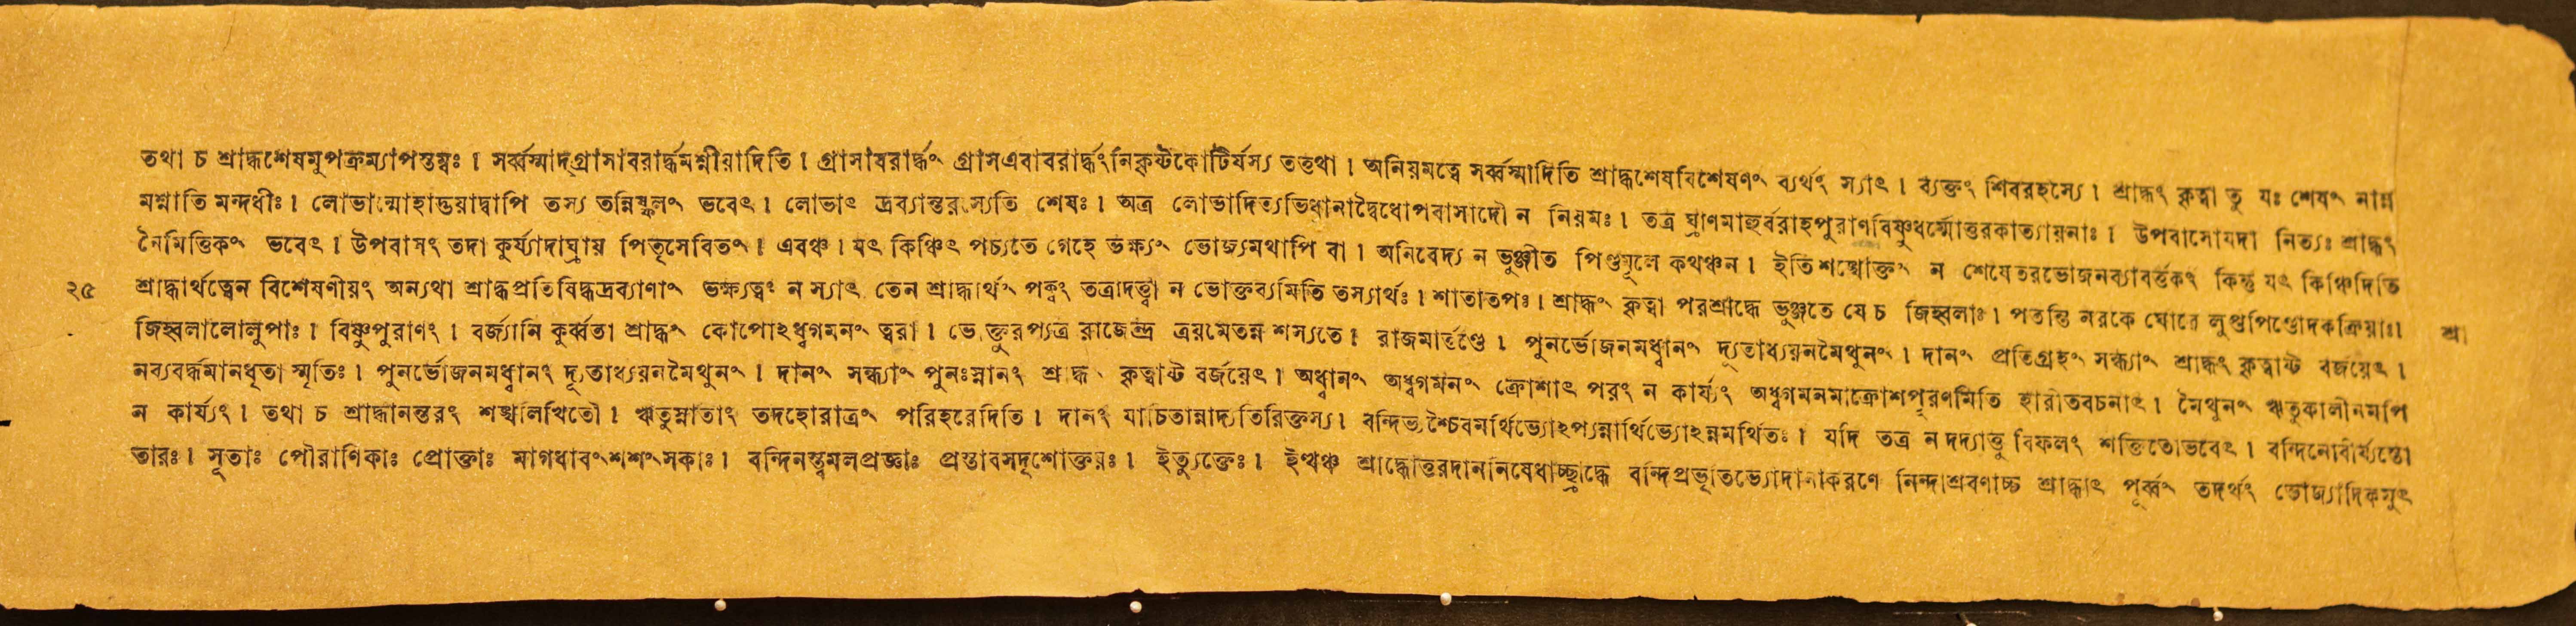 তথা চ শ্রাদ্ধশেষমুপক্রম্যাপস্তম্বঃ । সর্ব্বস্মাদ্গ্রাসাবরার্দ্ধমশ্নীয়াদিতি । গ্রাসাবরার্দ্ধং গ্রাসএবাবরার্দ্ধংনিকৃষ্টকোটির্যস্য তত্তথা । অনিয়মত্বে সর্ব্বস্মাদিতি শ্রাদ্ধশেষবিশেষণং ব্যর্থং স্যাৎ । ব্যক্তং শিবরহস্যে । শ্রাদ্ধং কৃত্বা তু যঃ শেষং নান্ন
মশ্নাতি মন্দধীঃ । লোভান্মোহাদ্ভয়াদ্বাপি তস্য তন্নিষ্ফলং ভবেৎ । লোভাৎ দ্রব্যান্তরস্যেতি শেষঃ । অত্র লোভাদিত্যভিধানাদ্বৈধোপবাসাদৌ ন নিয়মঃ । তত্র ঘ্রাণমাহুর্বরাহপুরাণবিষ্ণুধর্ম্মোত্তরকাত্যায়নাঃ । উপবাসোযদা নিত্যঃ শ্রাদ্ধং
নৈমিত্তিকং ভবেৎ । উপবাসং তদা কুর্য্যাদাঘ্রায় পিতৃসেবিতং । এবঞ্চ । যৎ কিঞ্চিৎ পচ্যতে গেহে ভক্ষ্যং ভোজ্যমথাপি বা । অনিবেদ্য ন ভুঞ্জীত পিণ্ডমূলে কথঞ্চন । ইতি শঙ্খোক্তং ন শেষেতরভোজনব্যাবর্ত্তকং কিন্তু যৎ কিঞ্চিদিতি
২৫ শ্রাদ্ধার্থত্বেন বিশেষণীয়ং অন্যথা শ্রাদ্ধপ্রতিষিদ্ধদ্রব্যাণাং ভক্ষ্যত্বং ন স্যাৎ তেন শ্রাদ্ধার্থং পক্বং তত্রাদত্ত্বা ন ভোক্তব্যমিতি তস্যার্থঃ । শাতাতপঃ । শ্রাদ্ধং কৃত্বা পরশ্রাদ্ধে ভুঞ্জতে যে চ জিহ্বলাঃ । পতন্তি নরকে ঘোরে লুপ্তপিণ্ডোদকক্রিয়াঃ।
জিহ্বলালোলুপাঃ । বিষ্ণুপুরাণং । বর্জ্যানি কুর্ব্বতা শ্রাদ্ধং কোপোঽধ্বগমনং ত্বরা । ভোক্তুরপ্যত্র রাজেন্দ্র ত্রয়মেতন্ন শস্যতে । রাজমার্ত্তণ্ডে । পুনর্ভোজনমধ্বানং দ্যূতাধ্যয়নমৈথুনং । দানং প্রতিগ্রহং সন্ধ্যাং শ্রাদ্ধং কৃত্বাষ্ট বর্জয়েৎ । শ্রা
নব্যবর্দ্ধমানধৃতা স্মৃতিঃ । পুনর্ভোজনমধ্বানং দ্যূতাধ্যয়নমৈথুনং । দানং সন্ধ্যাং পুনঃস্নানং শ্রাদ্ধং কৃত্বাষ্ট বর্জয়েৎ । অধ্বানং অধ্বগমনং ক্রোশাৎ পরং ন কার্য্যং অধ্বগমনমাক্রোশপূরণমিতি হারীতবচনাৎ । মৈথুনং ঋতুকালীনমপি
ন কার্য্যং । তথা চ শ্রাদ্ধানন্তরং শঙ্খলিখিতৌ । ঋতুস্নাতাং তদহোরাত্রং পরিহরেদিতি । দানং যাচিতান্নাদ্যতিরিক্তস্য । বন্দিভ্যশ্চৈবমর্থিভ্যোঽপ্যন্নার্থিভ্যোঽন্নমর্থিতঃ । যদি তত্র ন দদ্যাত্তু বিফলং শক্তিতোভবেৎ । বন্দিনোবীর্য্যস্তো
তারঃ । সূতাঃ পৌরাণিকাঃ প্রোক্তাঃ মাগধাবংশশংসকাঃ । বন্দিনস্ত্বমলপ্রজ্ঞাঃ প্রস্তাবসদৃশোক্তয়ঃ । ইত্যুক্তেঃ । ইত্থঞ্চ শ্রাদ্ধোত্তরদাননিষেধাচ্ছ্রাদ্ধে বন্দিপ্রভৃতিভ্যোদানাকরণে নিন্দাশ্রবণাচ্চ শ্রাদ্ধাৎ পূর্ব্বং তদর্থং ভোজ্যাদিকমুৎ